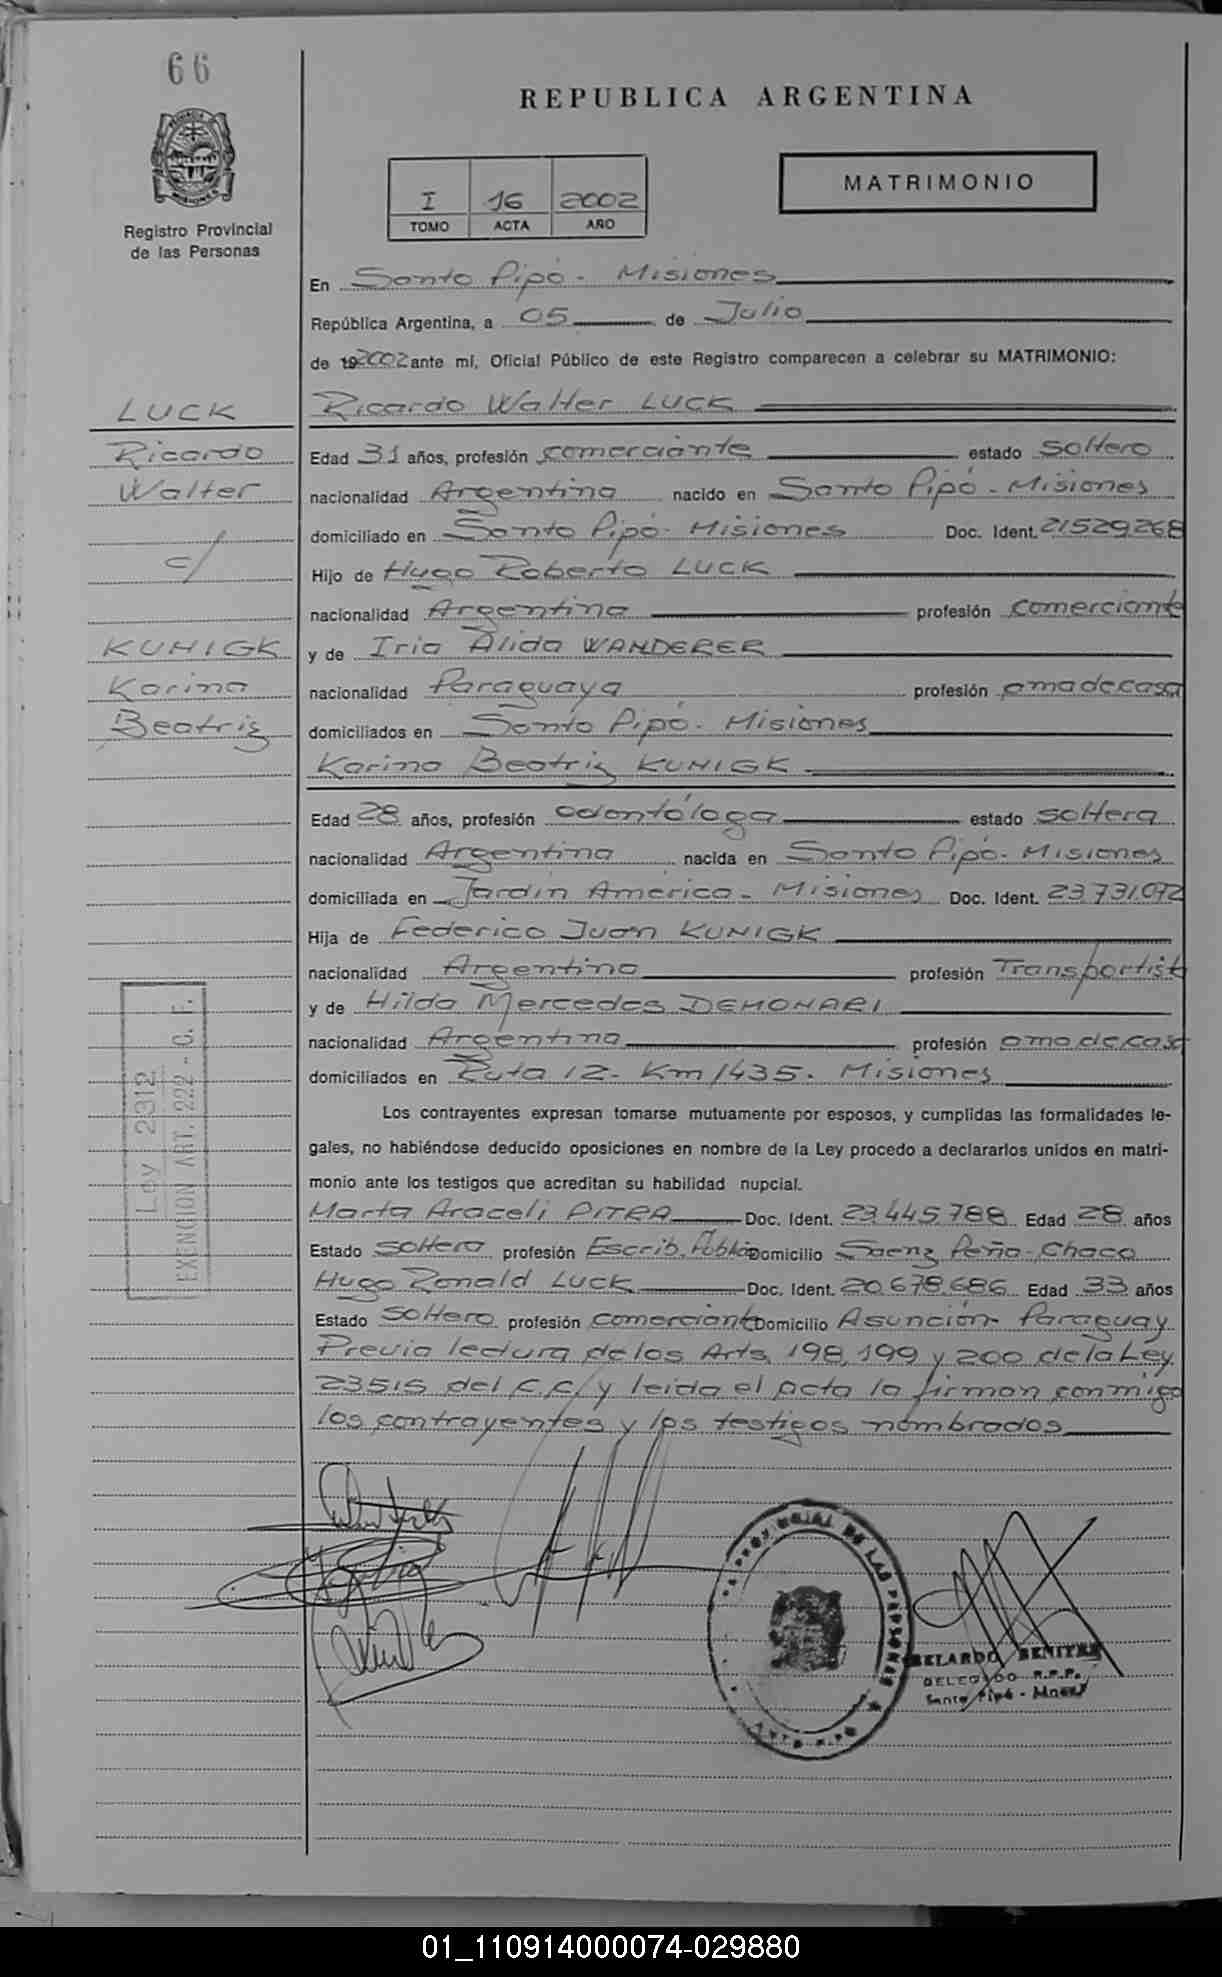 66
REPUBLICA ARGENTINA
MATRIMONIO
I 16 2002
TOMO ACTA AÑO
Registro Provincial
de las Personas
En Santo Pipó - Misiones
República Argentina, a 05 de Julio
de 192002 ante mí, Oficial Público de este Registro comparecen a celebrar su MATRIMONIO:
LUCK
Ricardo
Walter
c/
KUNIGK
Karina
Beatriz
Ricardo Walter LUCK
Edad 31 años, profesión comerciante estado soltero
nacionalidad Argentina nacido en Santo Pipó - Misiones
domiciliado en Santo Pipó - Misiones Doc. Ident. 21.529.268
Hijo de Hugo Roberto LUCK
nacionalidad Argentina profesión comerciante
y de Iria Alida WANDERER
nacionalidad Paraguaya profesión ama de casa
domiciliados en Santo Pipó - Misiones
Karina Beatriz KUNIGK
Edad 28 años, profesión odontóloga estado soltera
nacionalidad Argentina nacida en Santo Pipó - Misiones
domiciliada en Jardín América - Misiones Doc. Ident. 23.731.072
Hija de Federico Juan KUNIGK
nacionalidad Argentina profesión Transportista
y de Hilda Mercedes DEMONARI
nacionalidad Argentina profesión ama de casa
domiciliados en Ruta 12 - Km 1435 - Misiones
Los contrayentes expresan tomarse mutuamente por esposos, y cumplidas las formalidades le-
gales, no habiéndose deducido oposiciones en nombre de la Ley procedo a declararlos unidos en matri-
monio ante los testigos que acreditan su habilidad nupcial.
Marta Araceli PITRA Doc. Ident. 23.445.788 Edad 28 años
Estado soltera profesión Escrib. Pública Domicilio Saenz Peña - Chaco
Hugo Ronald LUCK Doc. Ident. 20.678.686 Edad 33 años
Estado soltero profesión comerciante Domicilio Asunción - Paraguay
Previa lectura de los Arts. 198, 199 y 200 de la Ley
23515 del C.C. y leida el acta la firman conmigo
los contrayentes y los testigos nombrados
Ley 2312
EXENCION ART. 222 - C. F.
BELARDO BENITEZ
DELEGADO R.P.P.
Santo Pipó - Mnes
01_110914000074-029880